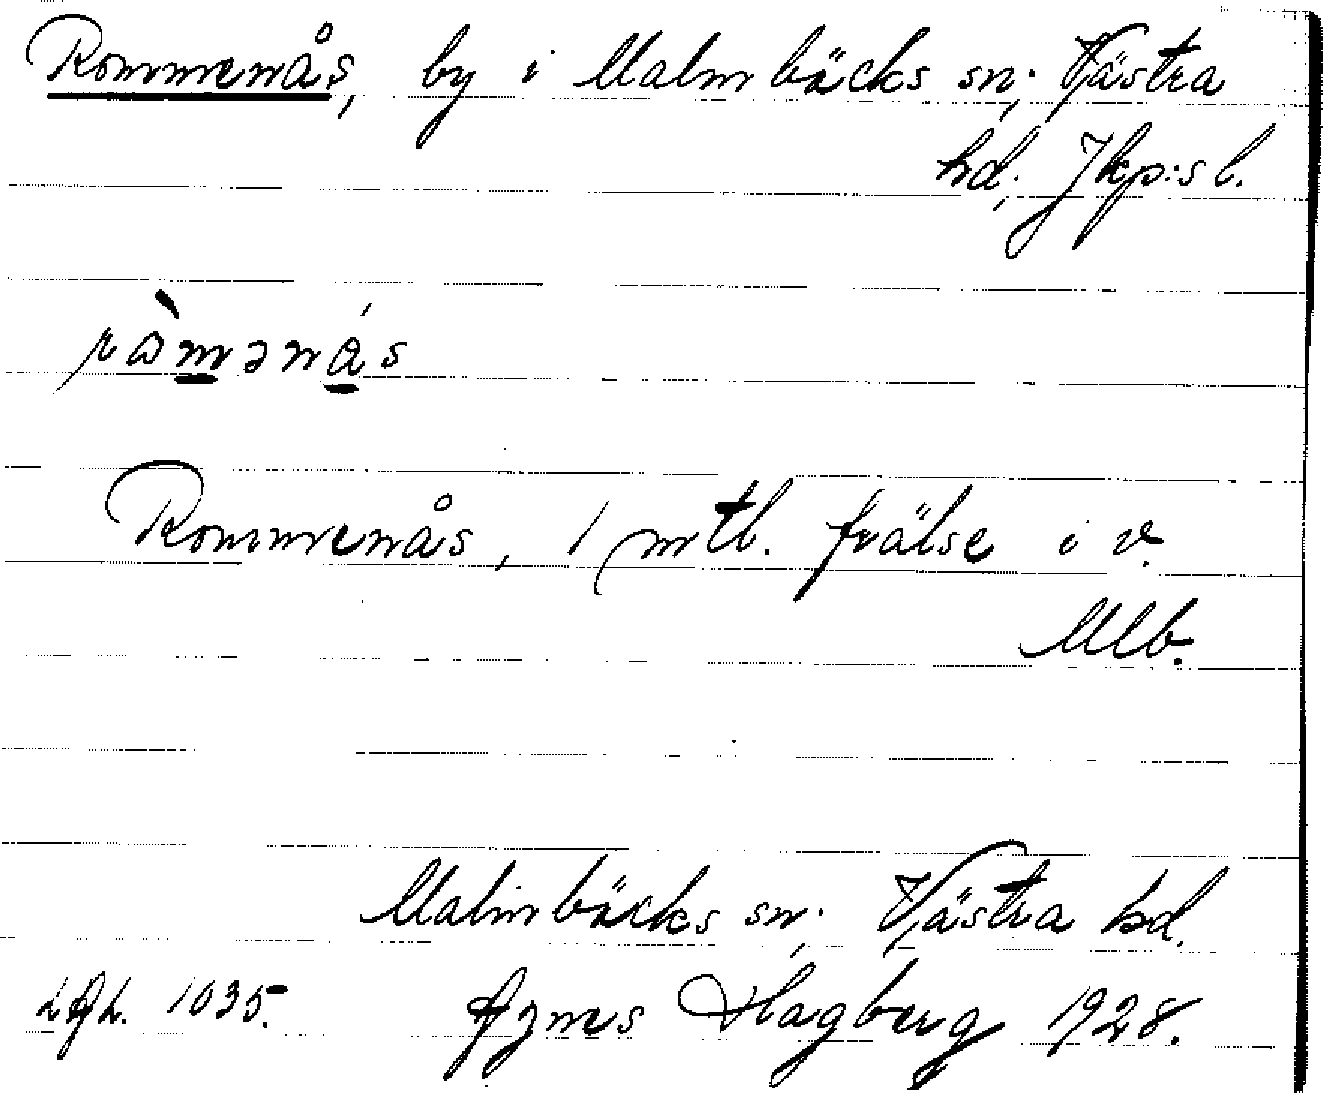 Rommenås, by i Malmbäcks sn; Västra
hd; Jkp:s l.
ròmənás
Rommenås, 1 mtl. frälse i v.
Mlb.
Malmbäcks sn; Västra hd.
1035. Agnes Hagberg 1928.